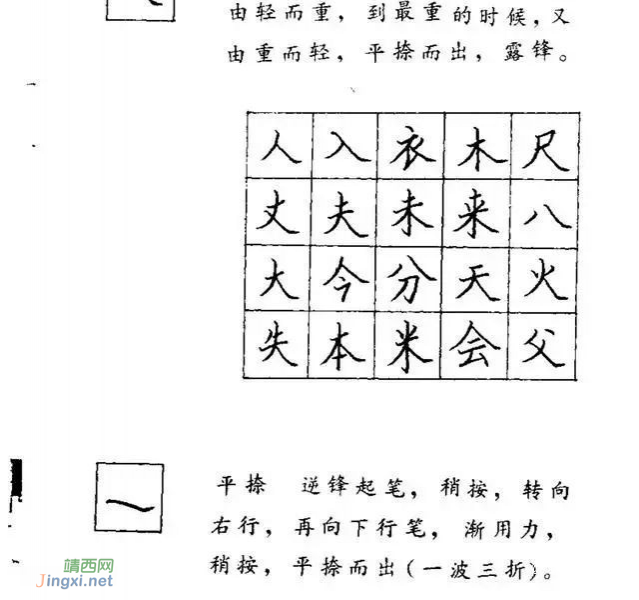 由轻而重，到最重的时候，又
由重而轻，平捺而出，露锋。
人入衣木尺
丈夫未来八
大今分天火
失本米会父
平捺 逆锋起笔，稍按，转向
右行，再向下行笔，渐用力，
稍按，平捺而出(一波三折)。
靖西网
Jingxi.net